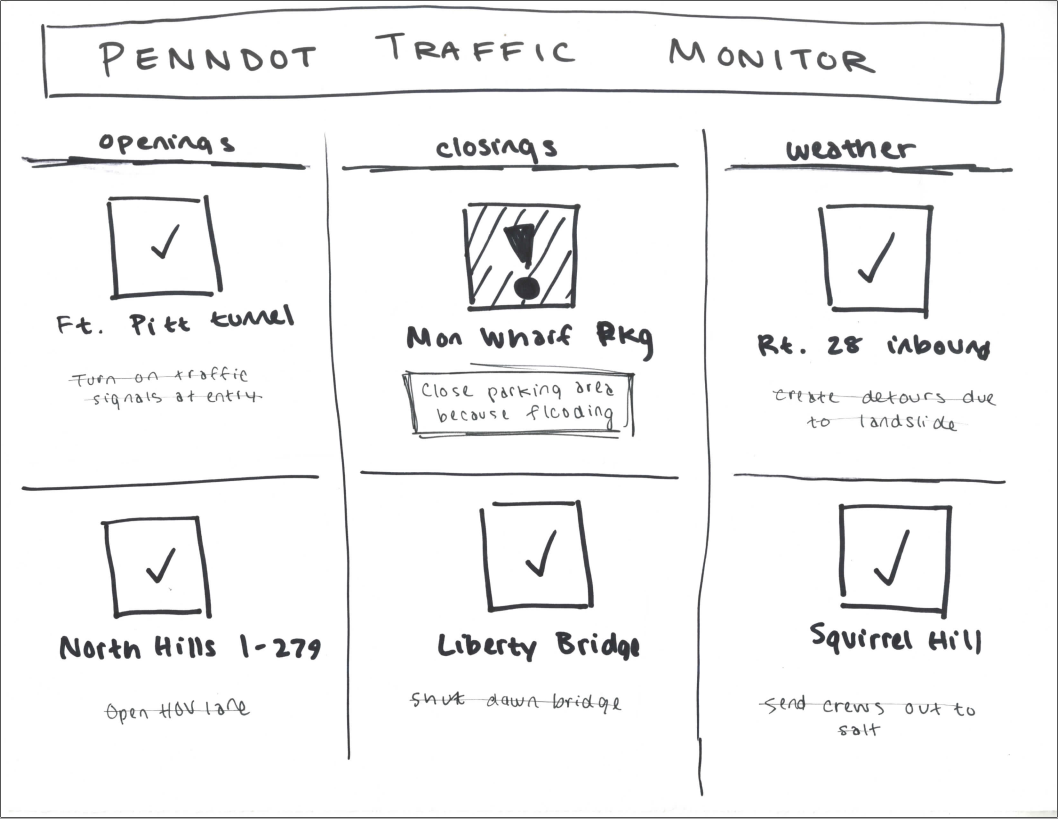 PENNDOT TRAFFIC MONITOR
openings
Ft. Pitt tunnel
Turn on traffic
signals at entry
North Hills I-279
Open HOV lane
closings
Mon Wharf Pkg
Close parking area
because flooding
Liberty Bridge
Shut down bridge
weather
Rt. 28 inbound
create detours due
to landslide
Squirrel Hill
Send crews out to
salt